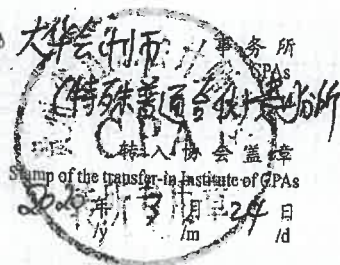 大华会计师 事务所
CPAs
(特殊普通合伙)
CPA
转入协会盖章
Stamp of the transfer-in Institute of CPAs
2020 年 3 月 24 日
/y /m /d